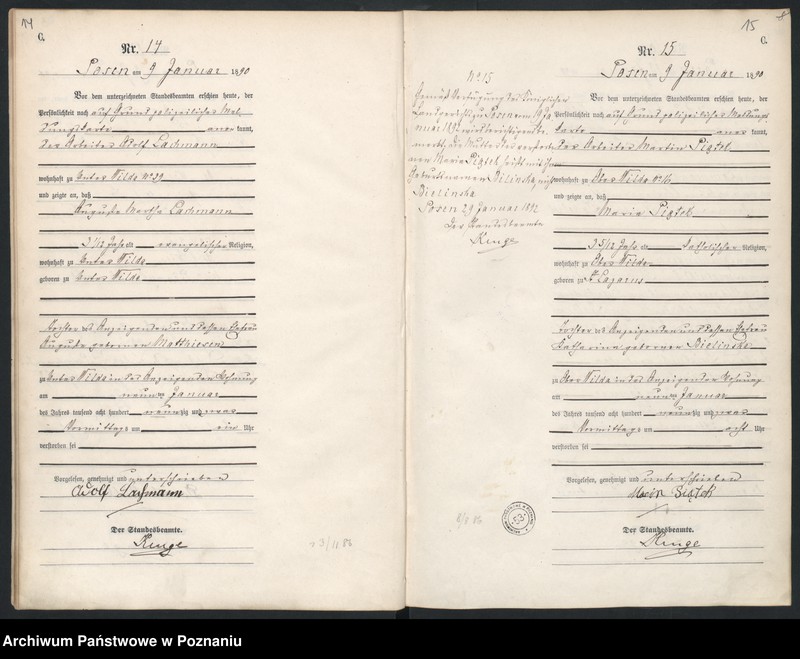 14
C.
Nr. 14
Posen am 9 Januar 1890
Vor dem unterzeichneten Standesbeamten erschien heute, der
Persönlichkeit nach auf Grund polizeilicher Mel-
dungskarte anerkannt,
der Arbeiter Adolf Lachmann
wohnhaft zu Unter Wilda No 29
und zeigte an, daß
Auguste Martha Lachmann
Jahr alt evangelischer Religion,
wohnhaft zu Unter Wilda
geboren zu Unter Wilda
Tochter des Anzeigenden und dessen Ehefrau
Auguste geborenen Matthiesen
zu Unter Wilda in des Anzeigenden Wohnung
am neunten Januar
des Jahres tausend acht hundert neunzig
Vormittags um ein Uhr
verstorben sei
Vorgelesen, genehmigt und unterschrieben
Adolf Lachmann
Der Standesbeamte.
Kluge
15
C.
No 15
Gemäß Verfügung des Königlichen
Landgerichts zu Posen vom
die Mutter der verstorbe-
nen Maria Piątek
Geburtsnamen Bilinska, nicht
Bielinska
Posen 29 Januar 1892
Der Standesbeamte
Kluge
Nr. 15
Posen am 9 Januar 1890
Vor dem unterzeichneten Standesbeamten erschien heute, der
Persönlichkeit nach auf Grund polizeilicher Meldungs-
karte anerkannt,
der Arbeiter Martin Piątek
wohnhaft zu Ober Wilda No 16
und zeigte an, daß
Maria Piątek
Jahr alt katholischer Religion,
wohnhaft zu Ober Wilda
geboren zu St Lazarus
Tochter des Anzeigenden und dessen Ehefrau
Katharina geborenen Bielinska
zu Ober Wilda in des Anzeigenden Wohnung
am neunten Januar
des Jahres tausend acht hundert neunzig
Vormittags um acht Uhr
verstorben sei
Vorgelesen, genehmigt und unterschrieben
Piątek
Der Standesbeamte.
Kluge
Archiwum Państwowe w Poznaniu